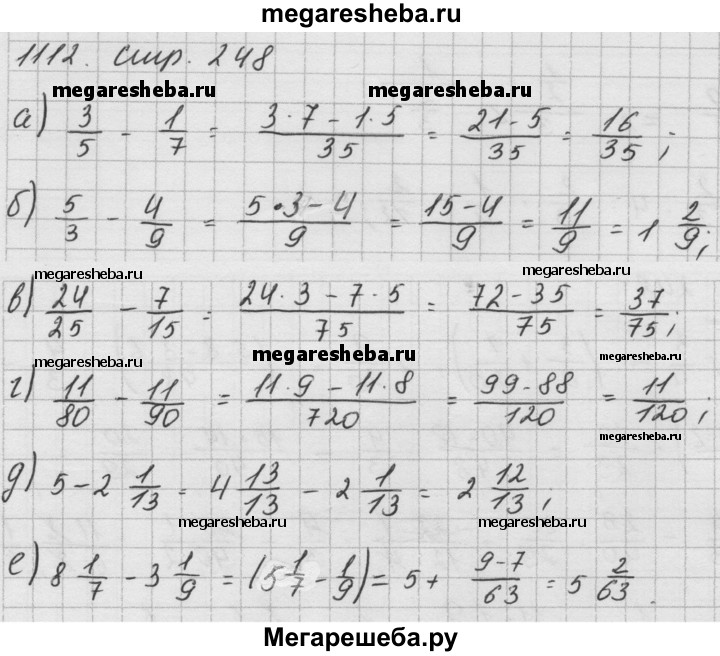 megaresheba.ru
1112. стр. 248
megaresheba.ru megaresheba.ru
а) 3/5 - 1/7 = (3·7 - 1·5)/35 = (21-5)/35 = 16/35;
б) 5/3 - 4/9 = (5·3-4)/9 = (15-4)/9 = 11/9 = 1 2/9;
megaresheba.ru megaresheba.ru
в) 24/25 - 7/15 = (24·3 - 7·5)/75 = (72-35)/75 = 37/75;
megaresheba.ru megaresheba.ru megaresheba.ru
г) 11/80 - 11/90 = (11·9 - 11·8)/720 = (99-88)/120 = 11/120;
megaresheba.ru
д) 5-2 1/13 = 4 13/13 - 2 1/13 = 2 12/13;
megaresheba.ru megaresheba.ru
е) 8 1/7 - 3 1/9 = (5 1/7 - 1/9) = 5 + (9-7)/63 = 5 2/63.
Мегарешеба.ру